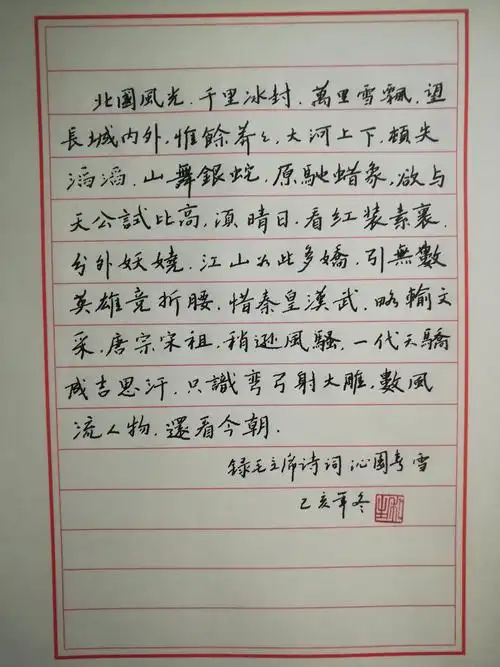 北國風光．千里冰封．萬里雪飄．望
長城内外，惟餘莽々，大河上下，頓失
滔滔．山舞銀蛇．原馳蜡象，欲与
天公試比高，須晴日．看红装素裹．
分外妖嬈．江山如此多嬌．引無數
英雄竞折腰．惜秦皇漢武．略輸文
采．唐宗宋祖．稍逊風騷．一代天驕
成吉思汗．只識彎弓射大雕．數風
流人物．還看今朝．
録毛主席诗词 沁園春 雪
乙亥年冬